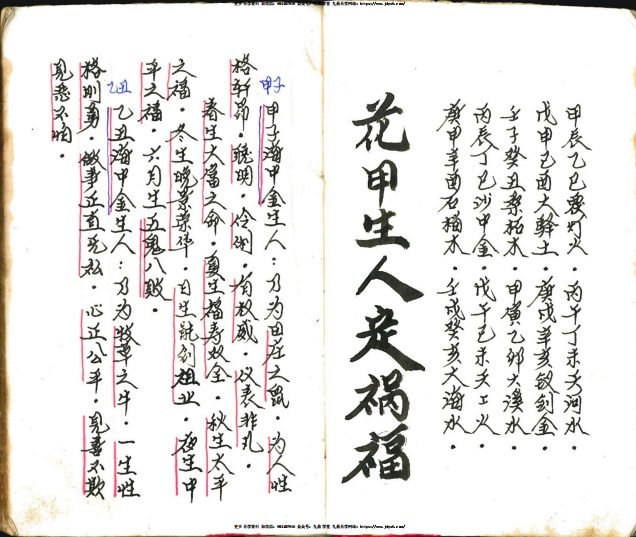 甲辰乙巳覆灯火。丙午丁未天河水。
戊申己酉大幹土。庚戌辛亥釵釧金。
壬子癸丑桑柘木。甲寅乙卯大溪水。
丙辰丁巳沙中金。戊午己未天上火。
庚申辛酉石榴木。壬戌癸亥大海水。
花甲生人定禍福
甲子
甲子海中金生人：乃为田庄之鼠。为人性
格轩昂。聪明。伶俐。有权威。仪表非凡。
春生大富之命，夏生福寿双全。秋生太平
之福。冬生晚景荣华。日生统刭祖业。夜生中
年之福。六月生五鬼八败。
乙丑
乙丑海中金生人：乃为牧草之牛。一生性
格刚勇。做事正直无私。心正公平。見善不欺
見恶不怕。